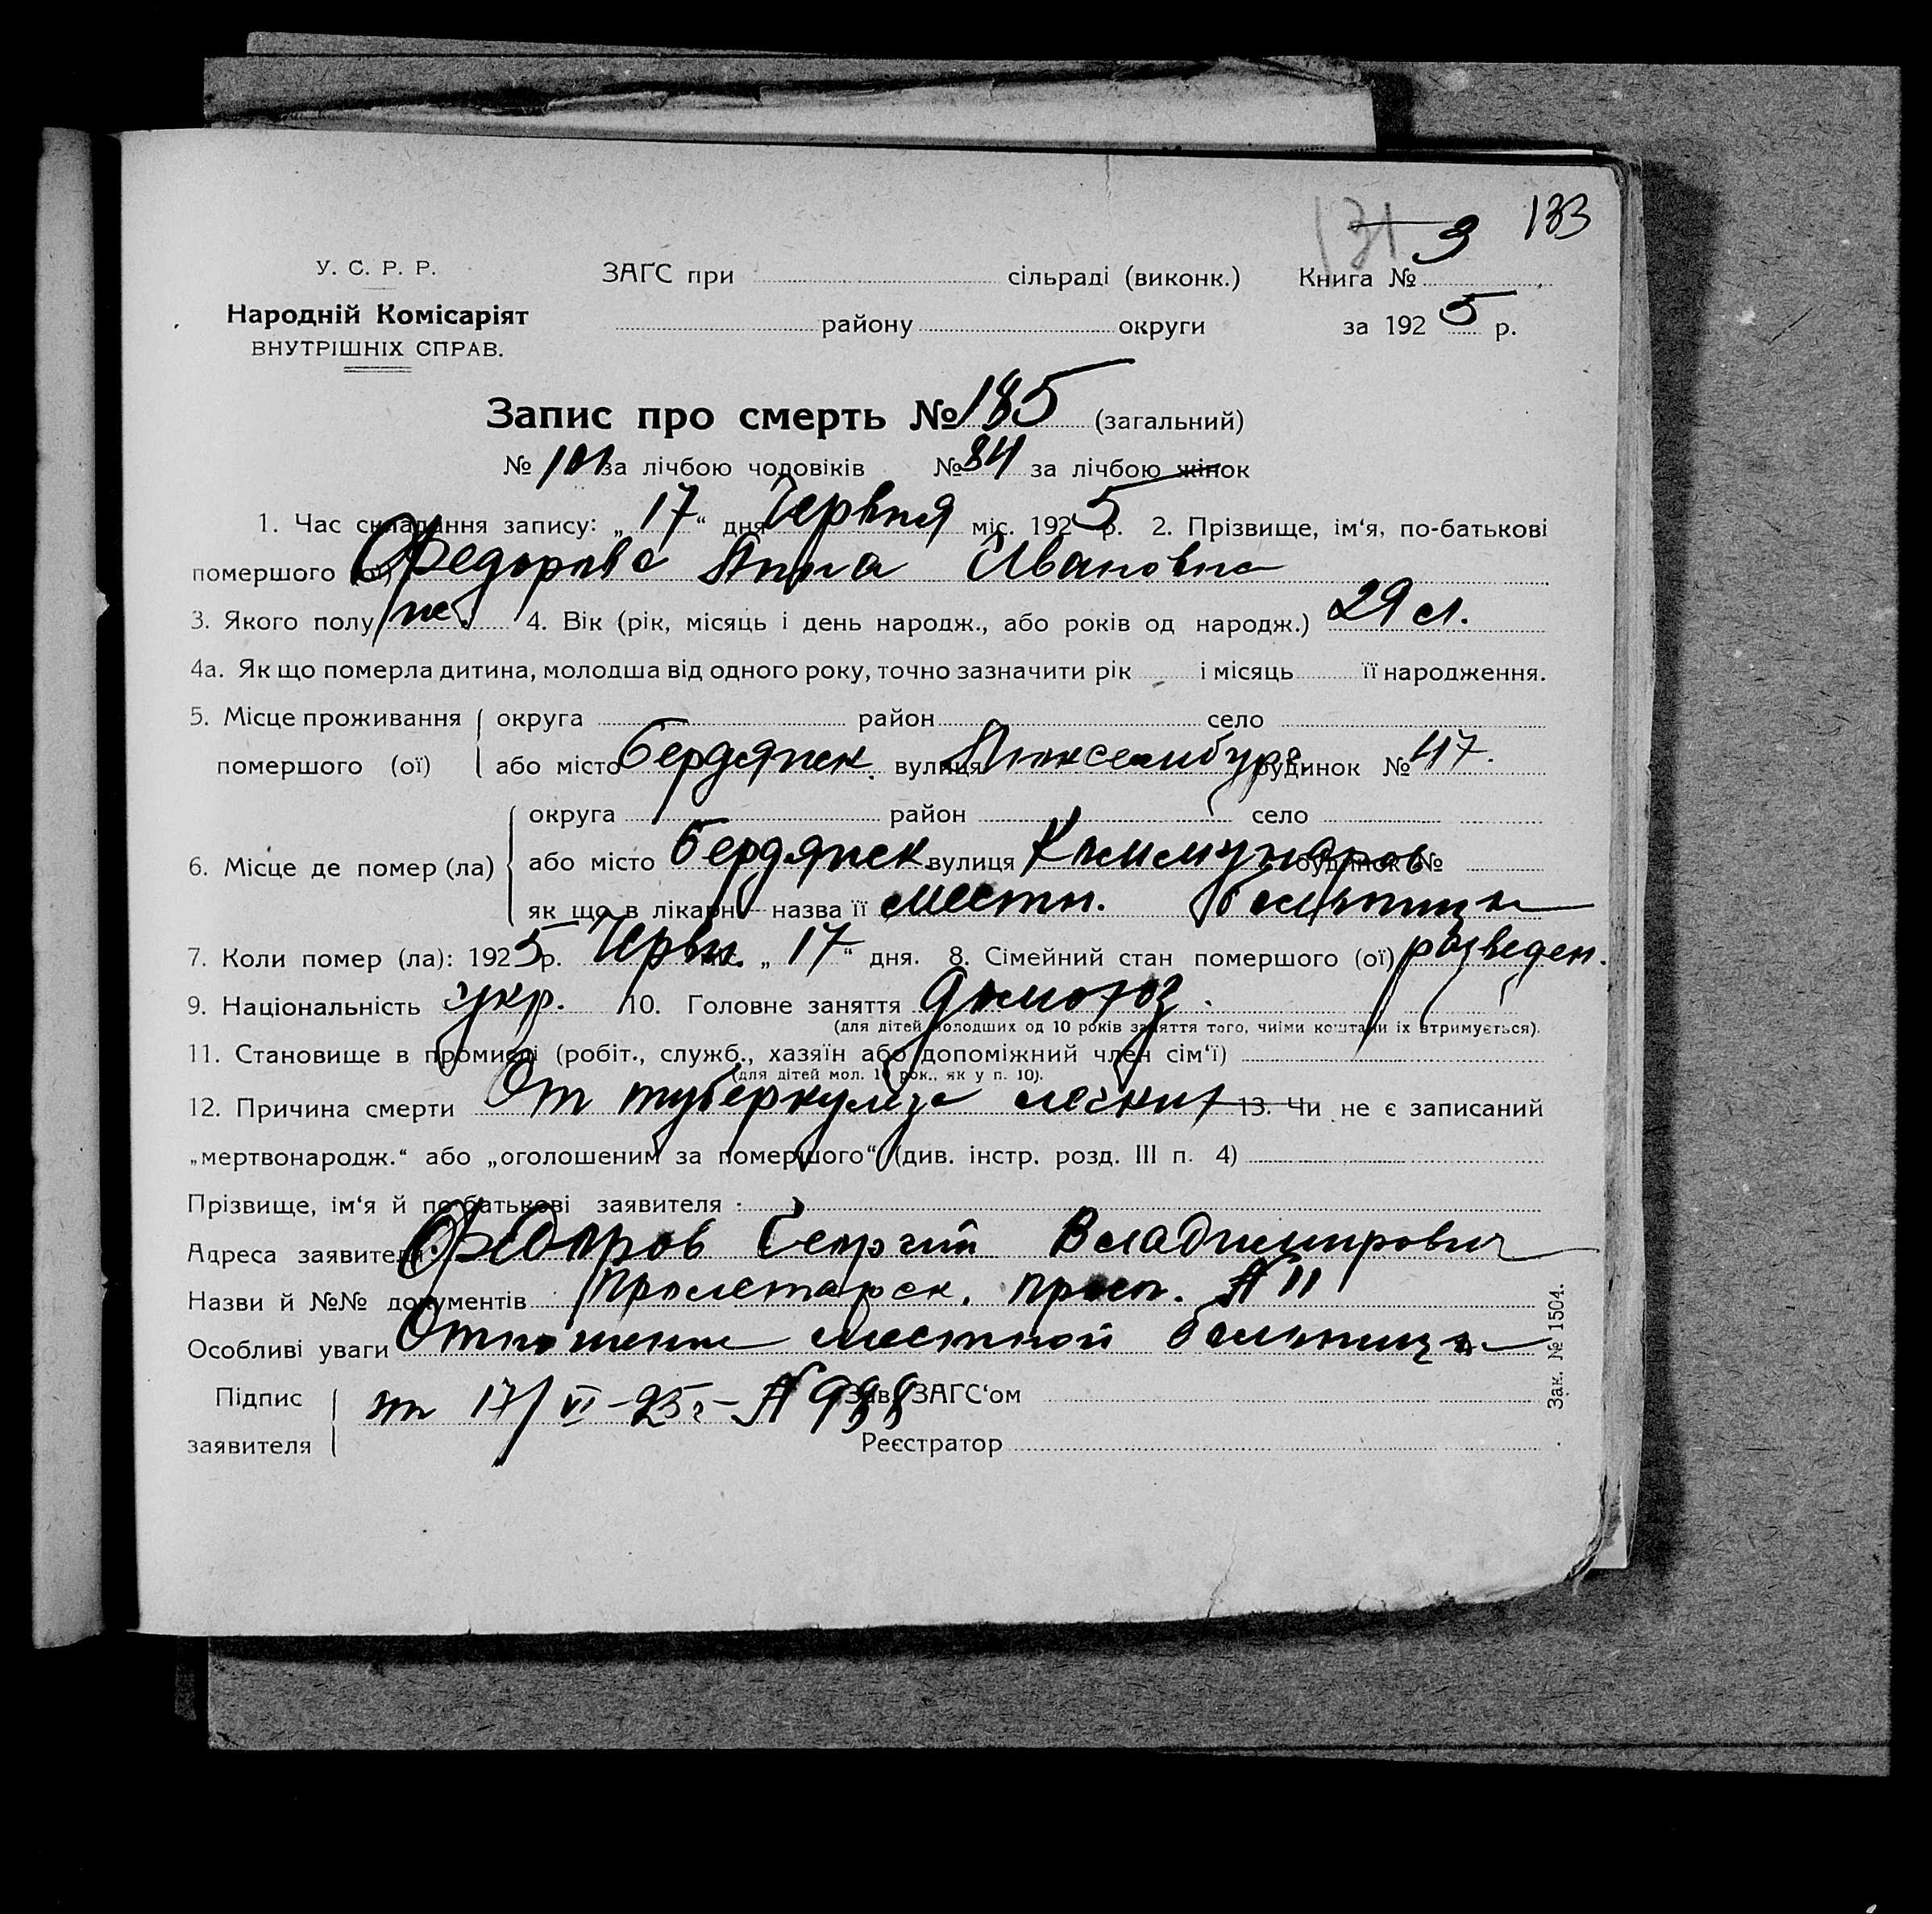 131 133
У. С. Р. Р. ЗАҐС при сільраді (виконк.) Книга № 3
Народній Комісаріят району округи за 1925 р.
ВНУТРІШНІХ СПРАВ.
Запис про смерть № 185 (загальний)
№ 101 за лічбою чоловіків № 84 за лічбою жінок
1. Час складання запису: „17“ дня Червня міс. 1925 р. 2. Прізвище, ім‘я, по-батькові
помершого (ої) Федорова Анна Ивановна
3. Якого полу ж. 4. Вік (рік, місяць і день народж., або років од народж.) 29 л.
4а. Як що померла дитина, молодша від одного року, точно зазначити рік і місяць її народження.
5. Місце проживання округа район село
помершого (ої) або місто Бердянск. вулиця Люксембург. будинок № 47.
округа район село
6. Місце де помер (ла) або місто Бердянск вулиця Коммунаров будинок №
як що в лікарні назва її Местн. больница
7. Коли помер (ла): 1925 р. Червн. міс. „17“ дня. 8. Сімейний стан помершого (ої) разведен.
9. Національність укр. 10. Головне заняття домохоз.
(для дітей молодших од 10 років заняття того, чиїми коштами їх втримується).
11. Становище в промислі (робіт., служб., хазяїн або допоміжний член сім‘ї)
(для дітей мол. 10 рок., як у п. 10).
12. Причина смерти От туберкулеза легких 13. Чи не є записаний
„мертвонародж.“ або „оголошеним за помершого“ (див. інстр. розд. III п. 4)
Прізвище, ім‘я й по-батькові заявителя
Адреса заявителя: Федоров Георгий Владимирович
Назви й №№ документів Пролетарск. просп. № 11
Особливі уваги Отношение Местной больницы
Підпис от 17/VI-25г. - № 988 Зав. ЗАГС‘ом
заявителя Реєстратор
Зак. № 1504.